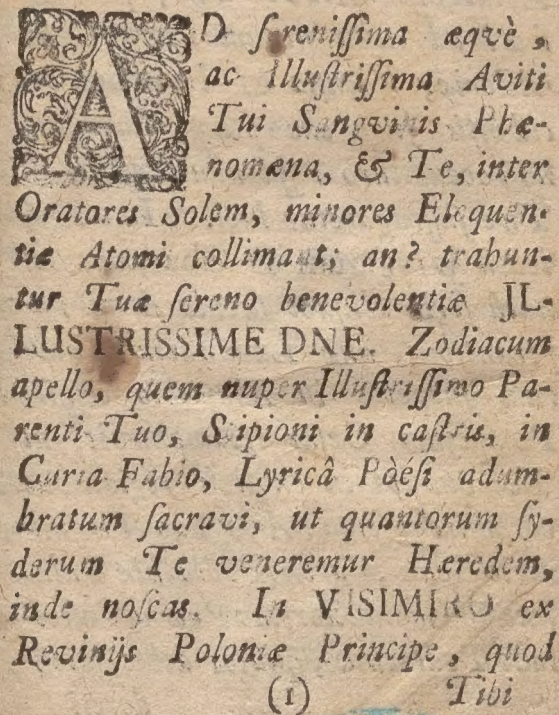 AD ſerenisſima æqvè,
ac Illuſtrisſima Aviti
Tui Sangvinis Phæ-
nomæna, & Te, inter
Oratores Solem, minores Eloquen-
tiæ Atomi collimant; an? trahun-
tur Tuæ ſereno benevolentiæ JL-
LUSTRISSIME DNE. Zodiacum
apello, quem nuper Illuſtrisſimo Pa-
renti Tuo, Scipioni in caſtris, in
Curia Fabio, Lyricâ Pòéſi adum-
bratum ſacravi, ut quantorum ſy-
derum Te veneremur Hæredem,
inde noſcas. In VISIMIRO ex
Revinijs Poloniæ Principe, quod
(1) Tibi